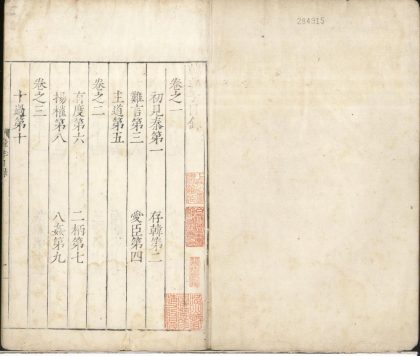 284315
卷之一
初見秦第一 存韓第二
難言第三 愛臣第四
主道第五
卷之二
有度第六 二柄第七
揚權第八 八姦第九
卷之三
十過第十